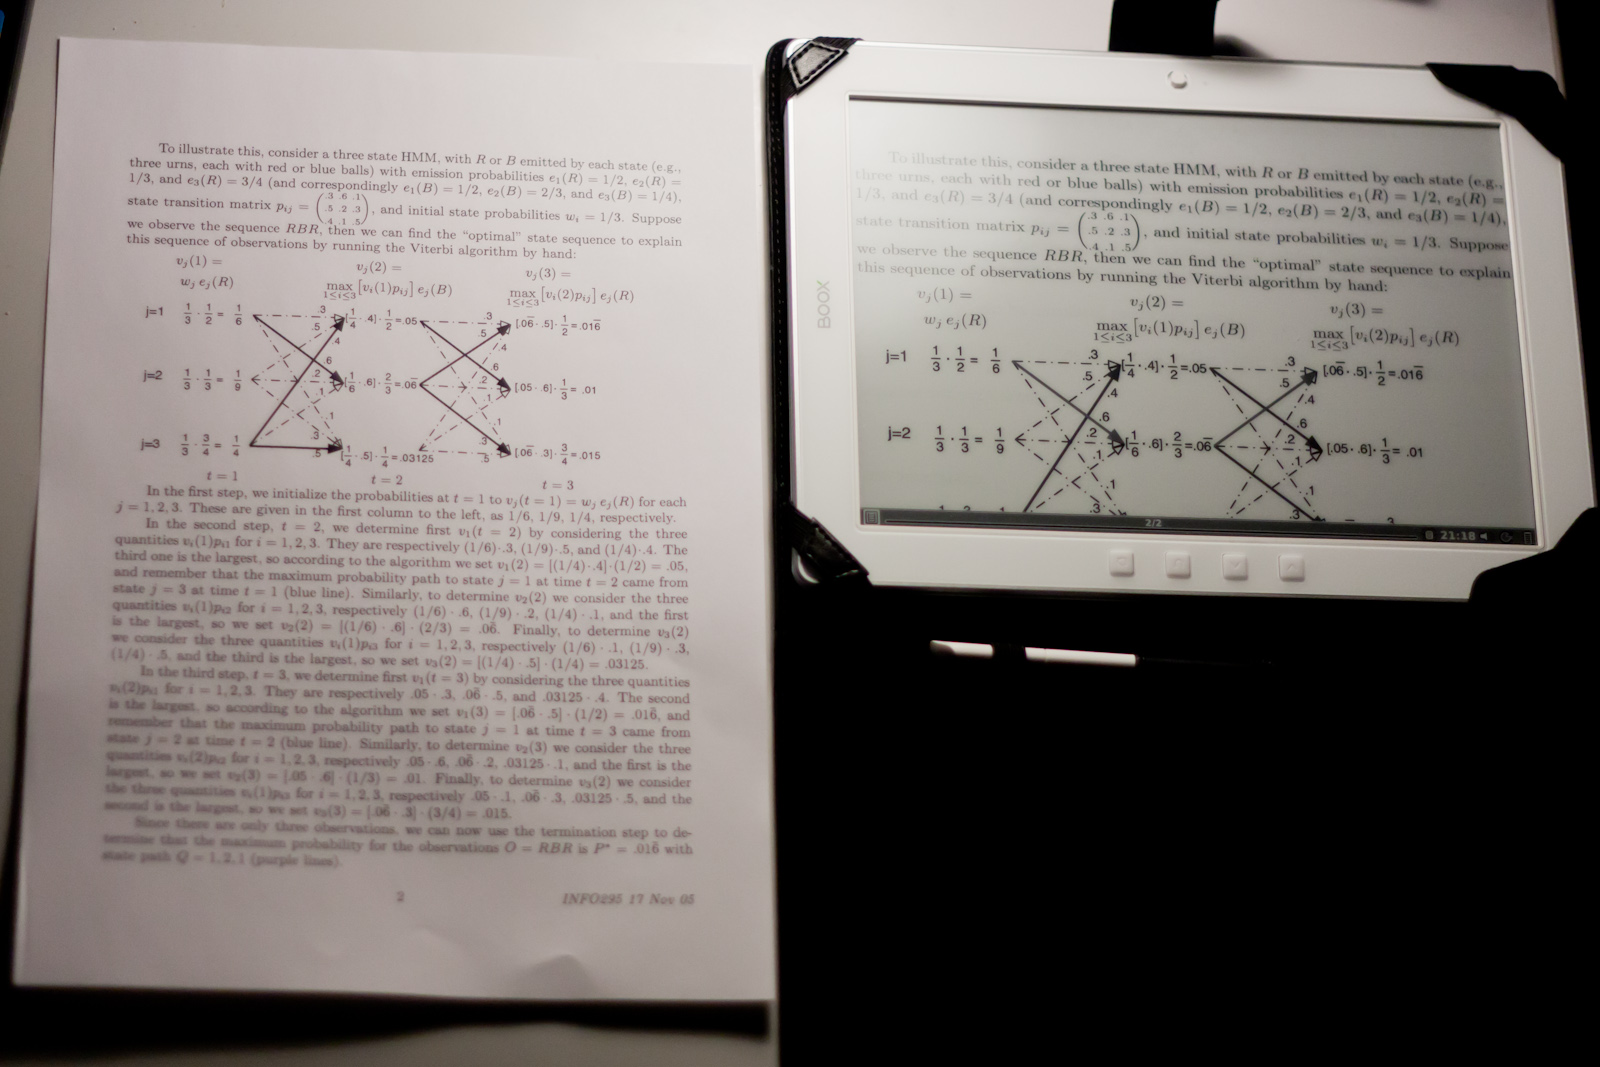 To illustrate this, consider a three state HMM, with R or B emitted by each state (e.g.,
three urns, each with red or blue balls) with emission probabilities e₁(R) = 1/2, e₂(R) =
1/3, and e₃(R) = 3/4 (and correspondingly e₁(B) = 1/2, e₂(B) = 2/3, and e₃(B) = 1/4),
state transition matrix pᵢⱼ = (.3 .6 .1 / .5 .2 .3 / .4 .1 .5), and initial state probabilities wᵢ = 1/3. Suppose
we observe the sequence RBR, then we can find the “optimal” state sequence to explain
this sequence of observations by running the Viterbi algorithm by hand:
vⱼ(1) = vⱼ(2) = vⱼ(3) =
wⱼ eⱼ(R) max 1≤i≤3 [vᵢ(1)pᵢⱼ] eⱼ(B) max 1≤i≤3 [vᵢ(2)pᵢⱼ] eⱼ(R)
j=1 1/3 · 1/2 = 1/6 .3 .5 .4 [1/4 · .4] · 1/2 = .05 .3 .5 .4 [.06̅ · .5] · 1/2 = .016̅
j=2 1/3 · 1/3 = 1/9 .6 .2 .1 [1/6 · .6] · 2/3 = .06̅ .6 .2 .1 [.05 · .6] · 1/3 = .01
j=3 1/3 · 3/4 = 1/4 .1 .3 .5 [1/4 · .5] · 1/4 = .03125 .1 .3 .5 [.06̅ · .3] · 3/4 = .015
t = 1 t = 2 t = 3
In the first step, we initialize the probabilities at t = 1 to vⱼ(t = 1) = wⱼ eⱼ(R) for each
j = 1, 2, 3. These are given in the first column to the left, as 1/6, 1/9, 1/4, respectively.
In the second step, t = 2, we determine first v₁(t = 2) by considering the three
quantities vᵢ(1)pᵢ₁ for i = 1, 2, 3. They are respectively (1/6)·.3, (1/9)·.5, and (1/4)·.4. The
third one is the largest, so according to the algorithm we set v₁(2) = [(1/4)·.4]·(1/2) = .05,
and remember that the maximum probability path to state j = 1 at time t = 2 came from
state j = 3 at time t = 1 (blue line). Similarly, to determine v₂(2) we consider the three
quantities vᵢ(1)pᵢ₂ for i = 1, 2, 3, respectively (1/6) · .6, (1/9) · .2, (1/4) · .1, and the first
is the largest, so we set v₂(2) = [(1/6) · .6] · (2/3) = .06̅. Finally, to determine v₃(2)
we consider the three quantities vᵢ(1)pᵢ₃ for i = 1, 2, 3, respectively (1/6) · .1, (1/9) · .3,
(1/4) · .5, and the third is the largest, so we set v₃(2) = [(1/4) · .5] · (1/4) = .03125.
In the third step, t = 3, we determine first v₁(t = 3) by considering the three quantities
vᵢ(2)pᵢ₁ for i = 1, 2, 3. They are respectively .05 · .3, .06̅ · .5, and .03125 · .4. The second
is the largest, so according to the algorithm we set v₁(3) = [.06̅ · .5] · (1/2) = .016̅, and
remember that the maximum probability path to state j = 1 at time t = 3 came from
state j = 2 at time t = 2 (blue line). Similarly, to determine v₂(3) we consider the three
quantities vᵢ(2)pᵢ₂ for i = 1, 2, 3, respectively .05 · .6, .06̅ · .2, .03125 · .1, and the first is the
largest, so we set v₂(3) = [.05 · .6] · (1/3) = .01. Finally, to determine v₃(2) we consider
the three quantities vᵢ(1)pᵢ₃ for i = 1, 2, 3, respectively .05 · .1, .06̅ · .3, .03125 · .5, and the
second is the largest, so we set v₃(3) = [.06̅ · .3] · (3/4) = .015.
Since there are only three observations, we can now use the termination step to de-
termine that the maximum probability for the observations O = RBR is P* = .016̅ with
state path Q = 1, 2, 1 (purple lines).
2 INFO295 17 Nov 05
BOOX
To illustrate this, consider a three state HMM, with R or B emitted by each state (e.g.,
three urns, each with red or blue balls) with emission probabilities e₁(R) = 1/2, e₂(R) =
1/3, and e₃(R) = 3/4 (and correspondingly e₁(B) = 1/2, e₂(B) = 2/3, and e₃(B) = 1/4),
state transition matrix pᵢⱼ = (.3 .6 .1 / .5 .2 .3 / .4 .1 .5), and initial state probabilities wᵢ = 1/3. Suppose
we observe the sequence RBR, then we can find the “optimal” state sequence to explain
this sequence of observations by running the Viterbi algorithm by hand:
vⱼ(1) = vⱼ(2) = vⱼ(3) =
wⱼ eⱼ(R) max 1≤i≤3 [vᵢ(1)pᵢⱼ] eⱼ(B) max 1≤i≤3 [vᵢ(2)pᵢⱼ] eⱼ(R)
j=1 1/3 · 1/2 = 1/6 .3 .5 .4 [1/4 · .4] · 1/2 = .05 .3 .5 .4 [.06̅ · .5] · 1/2 = .016̅
j=2 1/3 · 1/3 = 1/9 .6 .2 .1 [1/6 · .6] · 2/3 = .06̅ .6 .2 .1 [.05 · .6] · 1/3 = .01
.1 .3 .1 .3
2/2
21:18